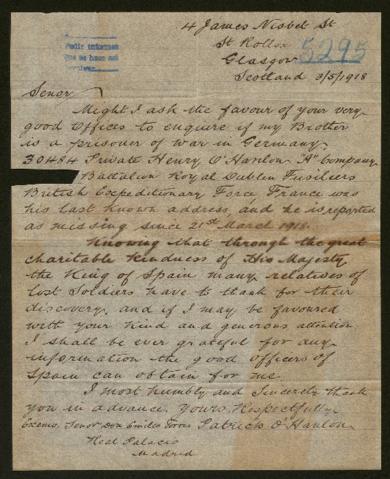 4 James Nisbet St
St Rollox
Glasgow
5295
Scotland 3/5/1918
Pedir informes
que se haga
Senor
Might I ask the favour of your very
good Offices to enquire if my Brother
is a prisoner of war in Germany.
30484 Private Henry O'Hanlon "A" Company
Battalion Royal Dublin Fusiliers
British Expeditionary Force France was
his last known address, and he is reported
as missing since 21st March 1918.
Knowing that through the great
charitable kindness of His Majesty
the King of Spain many relatives of
lost Soldiers have to thank for their
discovery, and if I may be favoured
with your kind and generous attention
I shall be ever grateful for any
information the good Officers of
Spain can obtain for me.
I most humbly and Sincerely thank
you in advance. Yours Respectfully
Excmo. Senor Don Emilio Torres Patrick O'Hanlon
Real Palacio
Madrid